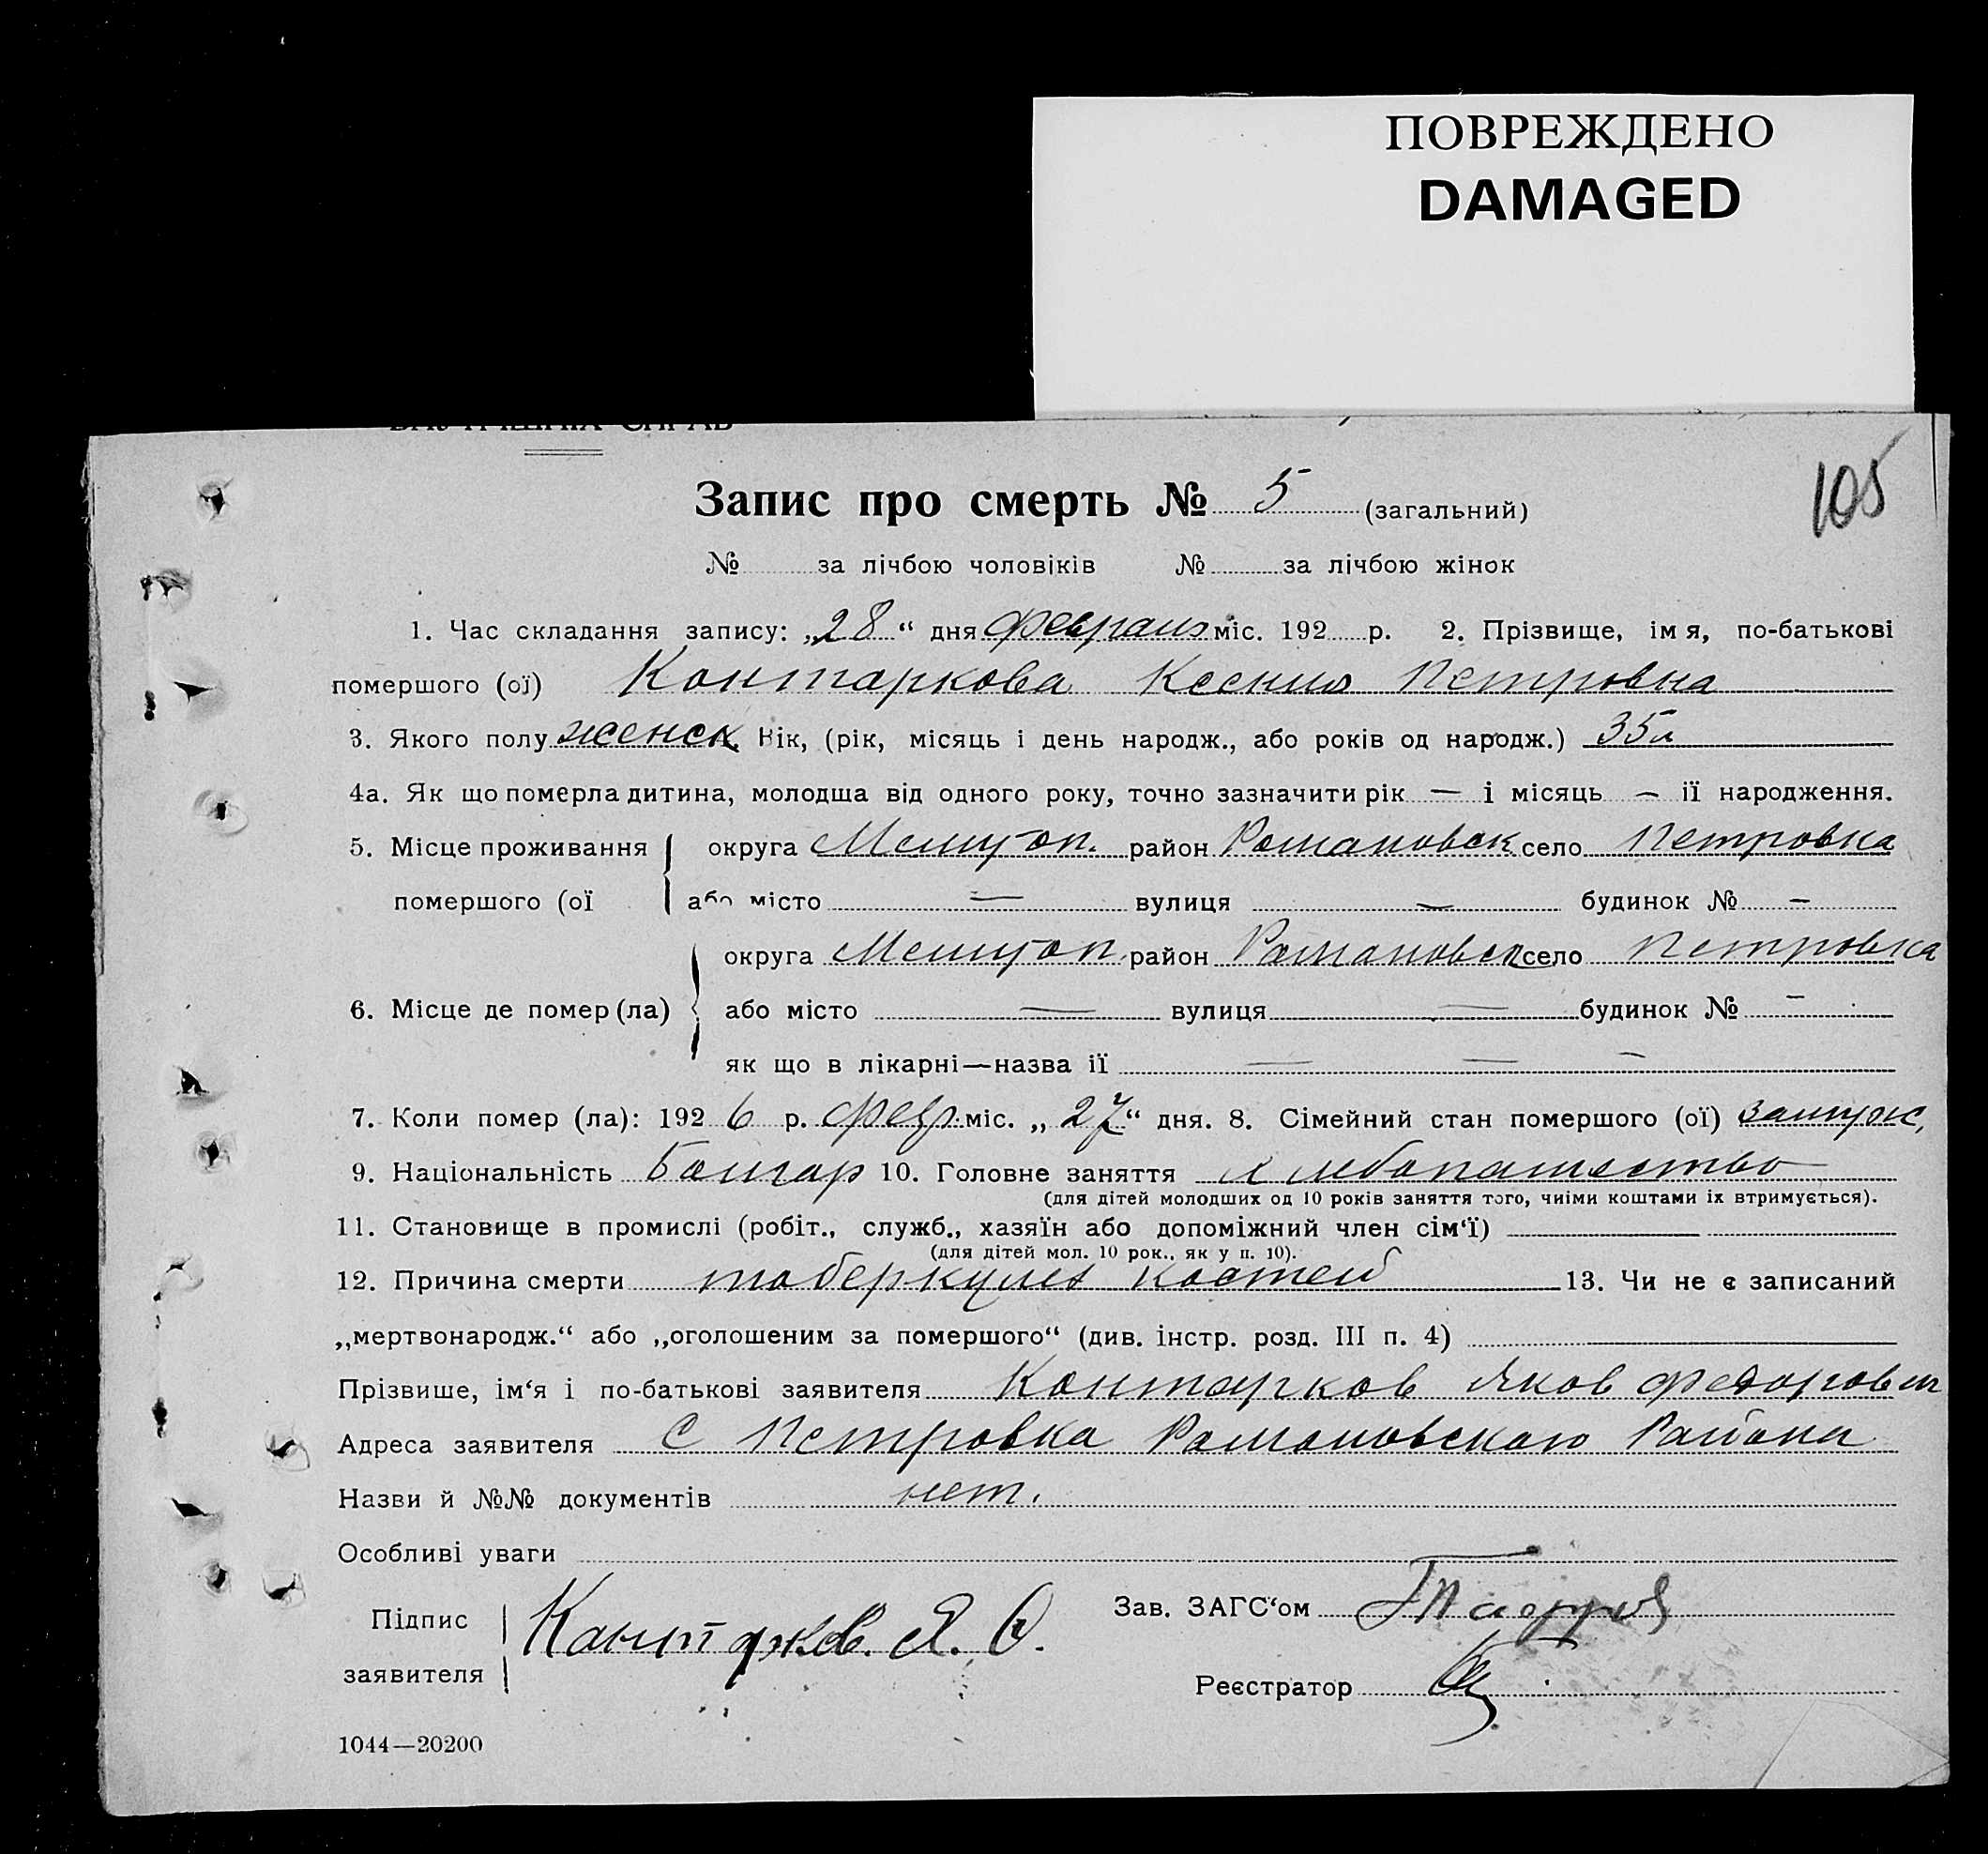 ПОВРЕЖДЕНО
DAMAGED
105
Запис про смерть № 5 (загальний)
№ за лічбою чоловіків № за лічбою жінок
1. Час складання запису: „28“ дня февраля міс. 192 р. 2. Прізвище, імя, по-батькові
помершого (ої) Контаркова Ксения Петровна
3. Якого полу женск. Вік, (рік, місяць і день народж., або років од народж.) 35 л
4а. Як що померла дитина, молодша від одного року, точно зазначити рік — і місяць — ії народження.
5. Місце проживання округа Мелитоп. район Романовск село Петровка
помершого (ої або місто — вулиця — будинок № —
округа Мелитоп. район Романовск село Петровка
6. Місце де помер (ла) або місто — вулиця — будинок № —
як що в лікарні—назва ії — — —
7. Коли помер (ла): 1926 р. февр. міс. „27“ дня. 8. Сімейний стан помершого (ої) замуж.
9. Національність Болгар 10. Головне заняття хлебопашество
(для дітей молодших од 10 років заняття того, чиїми коштами їх втримується).
11. Становище в промислі (робіт., служб., хазяїн або допоміжний член сім‘ї) —
(для дітей мол. 10 рок., як у п. 10).
12. Причина смерти тоберкулез костей 13. Чи не є записаний
„мертвонародж.“ або „оголошеним за помершого“ (див. інстр. розд. III п. 4)
Прізвише, ім‘я і по-батькові заявителя Контарков Яков Федорович
Адреса заявителя С Петровка Романовского Района
Назви й №№ документів нет.
Особливі уваги
Підпис заявителя Контарков. Я. Ф.
Зав. ЗАГС‘ом
Реєстратор
1044—20200